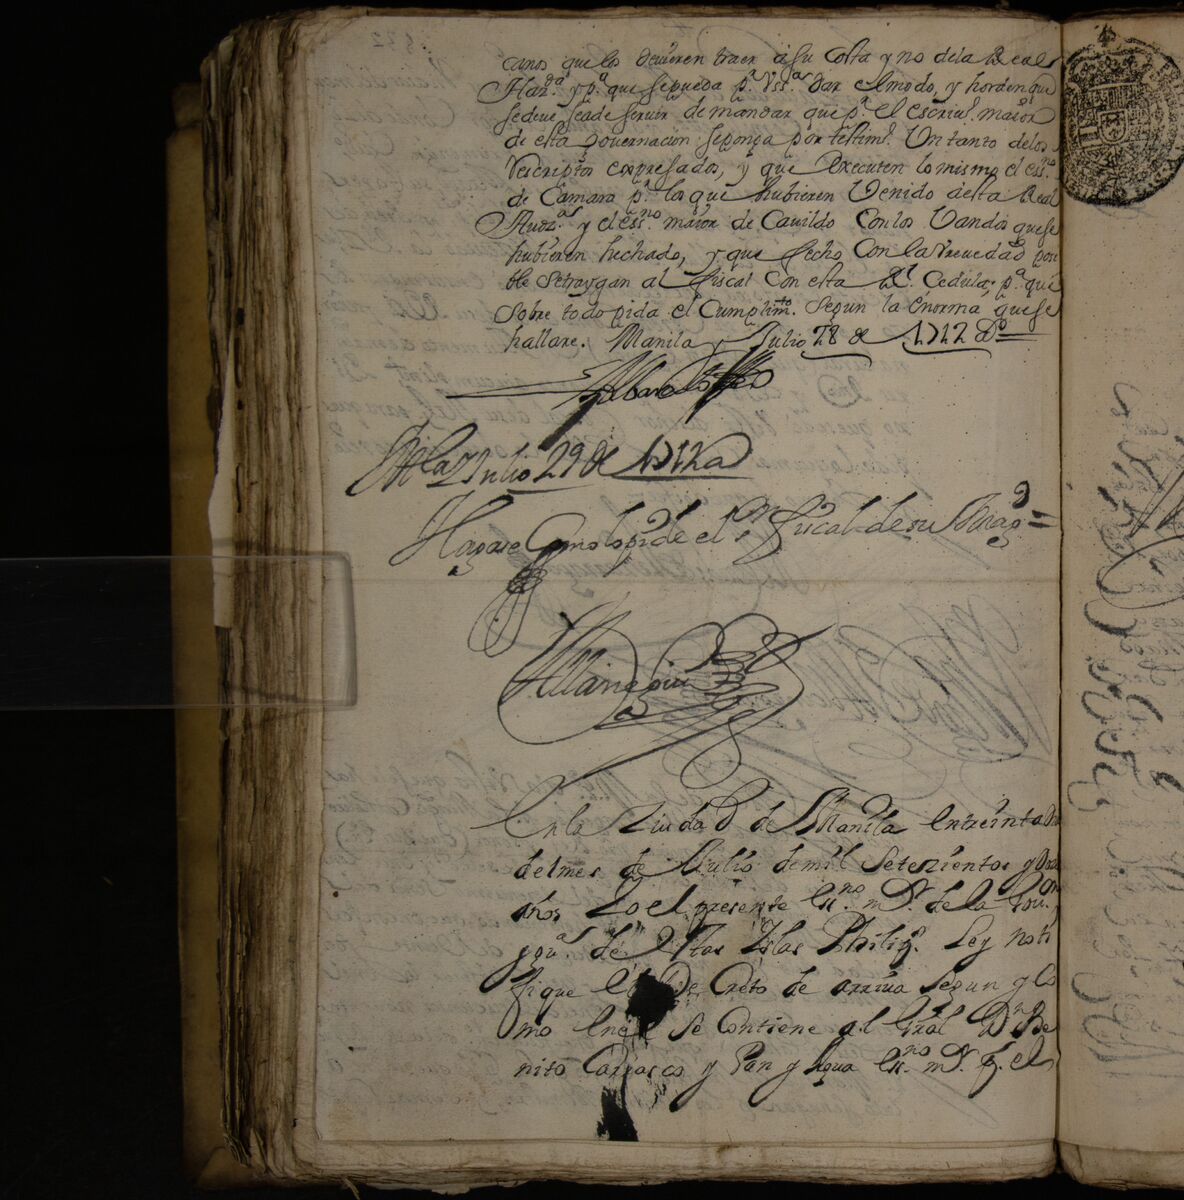 canos que los devieren traer a su costa y no de la Real
Haz.ᵈᵃ y p.ᵃ que se pueda p.ʳ Vss.ᵃ dar el modo, y horden que
se deve, se a de servir de mandar que p.ʳ el escriu.º maior
de esta governacion se ponga por testim.º Un tanto de los
Rescriptos expresados, y que executen lo mismo el ess.ⁿᵒ
de Camara p.ʳ los que hubieren Venido a esta Real
Aud.ᵃ y el ess.ⁿᵒ maior de Cavildo Con los Vandos que se
hubieren hechado, y que fecho Con la brevedad posi
ble se traygan al fiscal Con esta R.ˡ Cedula, p.ᵃ que
sobre todo pida el Cumplim.ᵗᵒ Segun la enorma que se
hallare. Manila y Julio 28 de 1712 a.ˢ
Mla y Julio 29 de 1712 a
Hagase Como lo pide el S.ʳ fiscal de su Mag.ᵈ
En la Ziudad de Manila en treinta dias
del mes de Julio de mil setezientos y doze
años Yo el presente Ess.ⁿᵒ m.ʳ de la Gov.ᵒⁿ y
gu.ᵃ de estas Islas Philip.ˢ Ley noti
fique el De Creto de arriva segun y Co
mo en el se Contiene al Gral D.ⁿ Be
nito Carrasco y Pan y Agua Ess.ⁿᵒ m.ʳ q. el